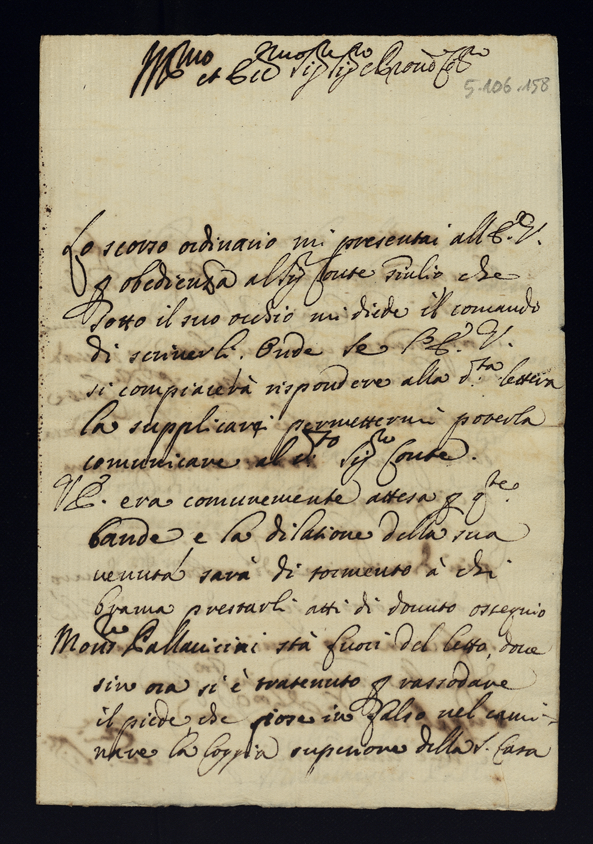 Ill.mo
et Ecc.mo Sig.re Sig.re e Pron Col.mo
5.106.158
Lo scorso ordinario mi presentai all'E. V.
p obedienza al Sig.r Conte Giulio che
sotto il suo occhio mi diede il comando
di scriverli. Onde se l'E. V.
si compiacerà rispondere alla d.ta lettera
la supplicarei permettermi poterla
comunicare al d.to Sig.re Conte.
V. E. era comunemente attesa p q.ste
bande e la dilatione della sua
venuta sarà di tormento à chi
brama prestarli atti di dovuto ossequio
Mons.re Pallavicini stà fuori del letto, dove
sin ora si è tratenuto p rassodare
il piede che pose in falso nel cami-
nare la loggia superiore della S. Casa